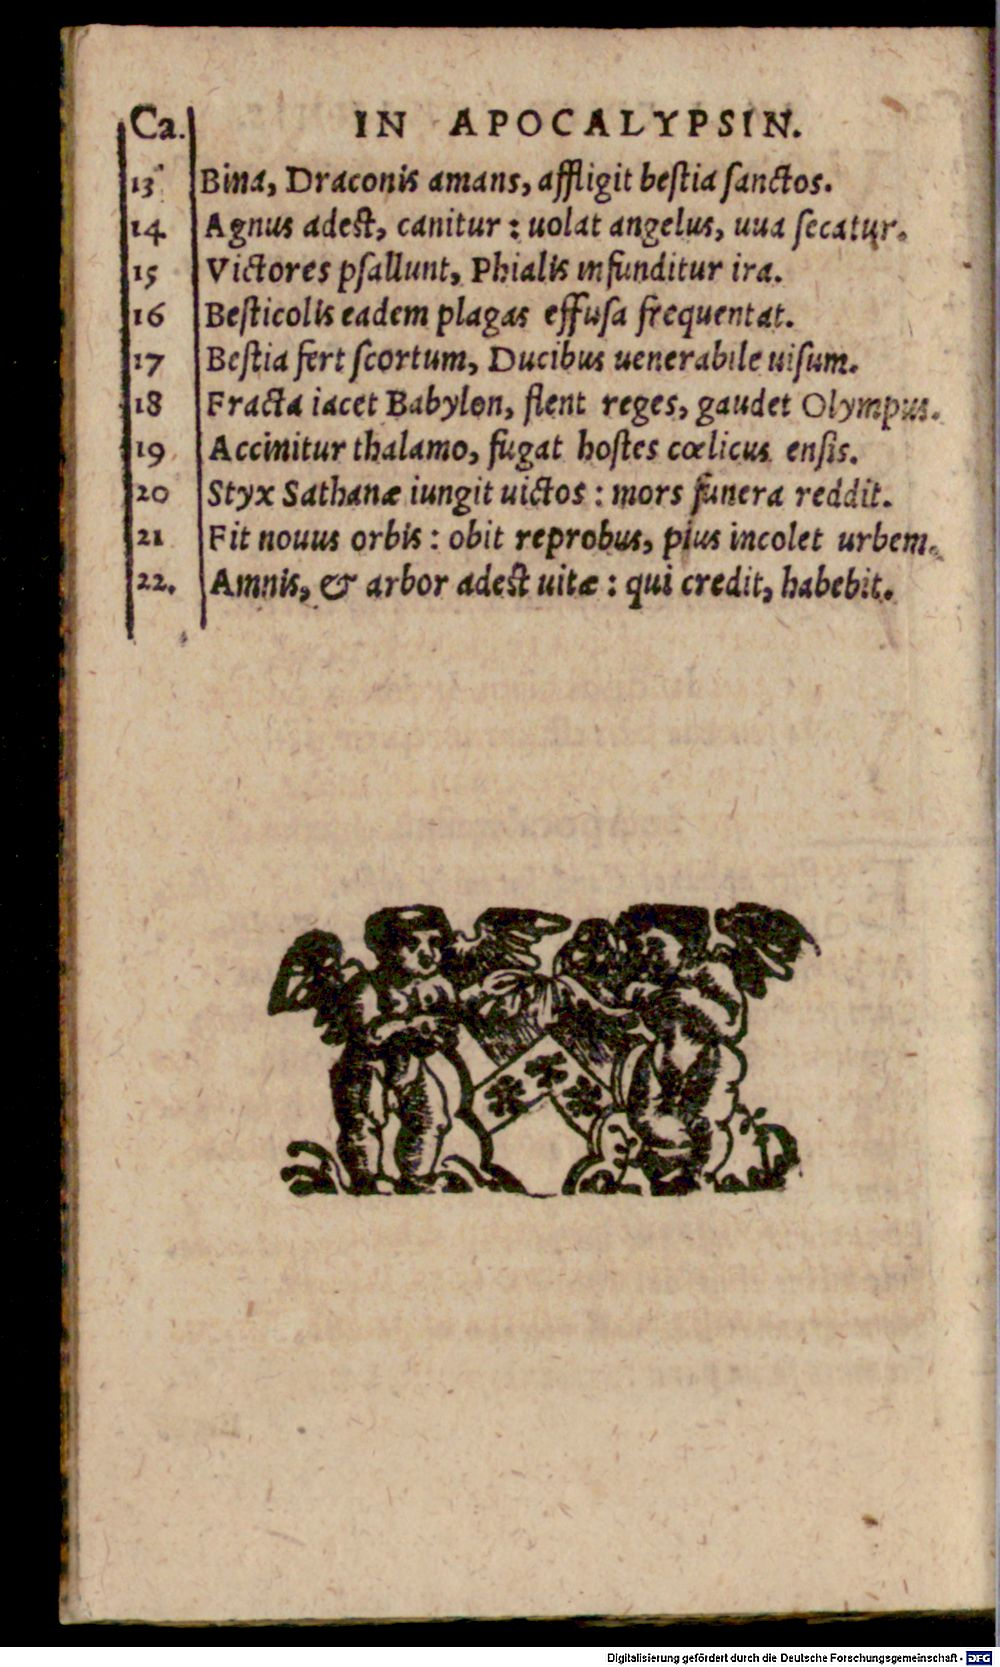 Ca. IN APOCALYPSIN.
13 Bina, Draconis amans, affligit beſtia ſanctos.
14 Agnus adest, canitur : uolat angelus, uua ſecatur.
15 Victores pſallunt, Phialis infunditur ira.
16 Beſticolis eadem plagas effuſa frequentat.
17 Beſtia fert ſcortum, Ducibus uenerabile uiſum.
18 Fracta iacet Babylon, flent reges, gaudet Olympus.
19 Accinitur thalamo, fugat hoſtes cœlicus enſis.
20 Styx Sathanæ iungit uictos : mors funera reddit.
21 Fit nouus orbis : obit reprobus, pius incolet urbem.
22. Amnis, & arbor adest uitæ : qui credit, habebit.
Digitalisierung gefördert durch die Deutsche Forschungsgemeinschaft - DFG